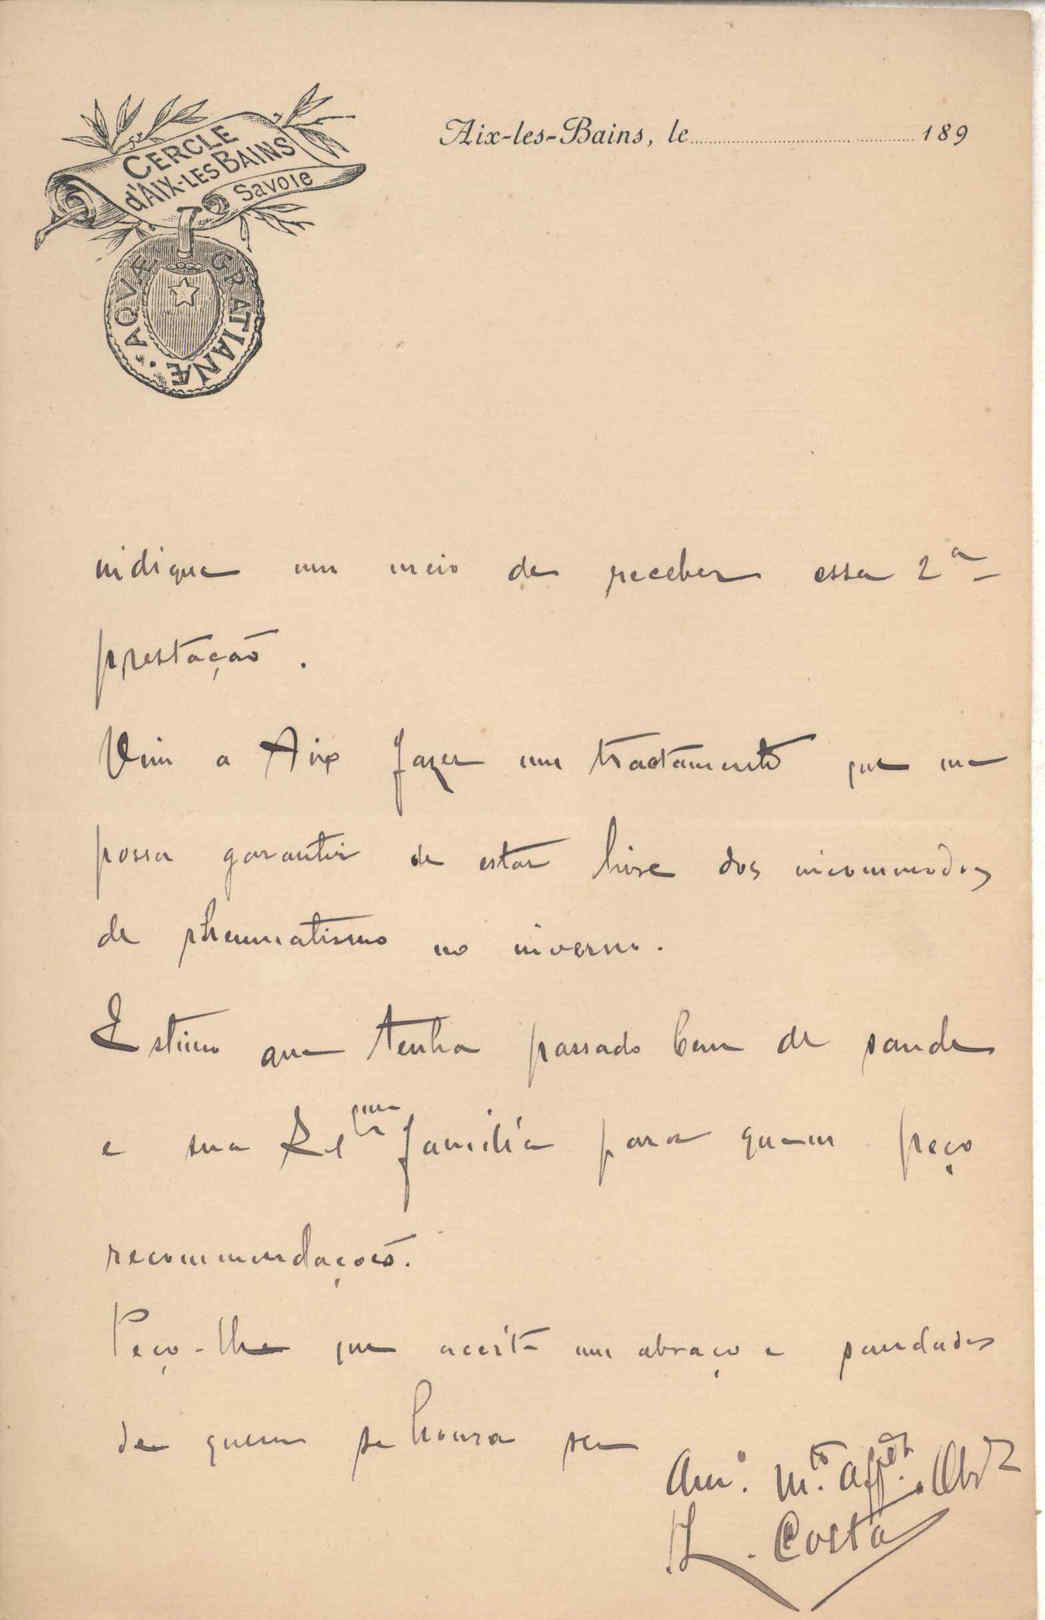 CERCLE
d'AIX-LES BAINS
Savoie
AQVÆ GRATIANÆ
Aix-les-Bains, le 189
indique um meio de receber essa 2ª
prestação.
Vim a Aix fazer um tractamento que me
possa garantir de estar livre dos incommodos
de rheumatismo no inverno.
Estimo que tenha passado bem de saude
e sua familia para quem peço
recommendações.
Peço-lhe que aceite um abraço e saudades
de quem se honra ser
Am.º m.to Obr
Costa